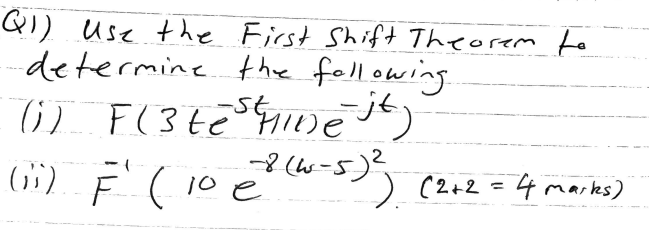 Q1) Use the First Shift Theorem to
determine the following
(i) F(3te^{-5t}H(t)e^{-jt})
(ii) F^{-1}(10e^{-8(ω-5)^2}) (2+2 = 4 marks)